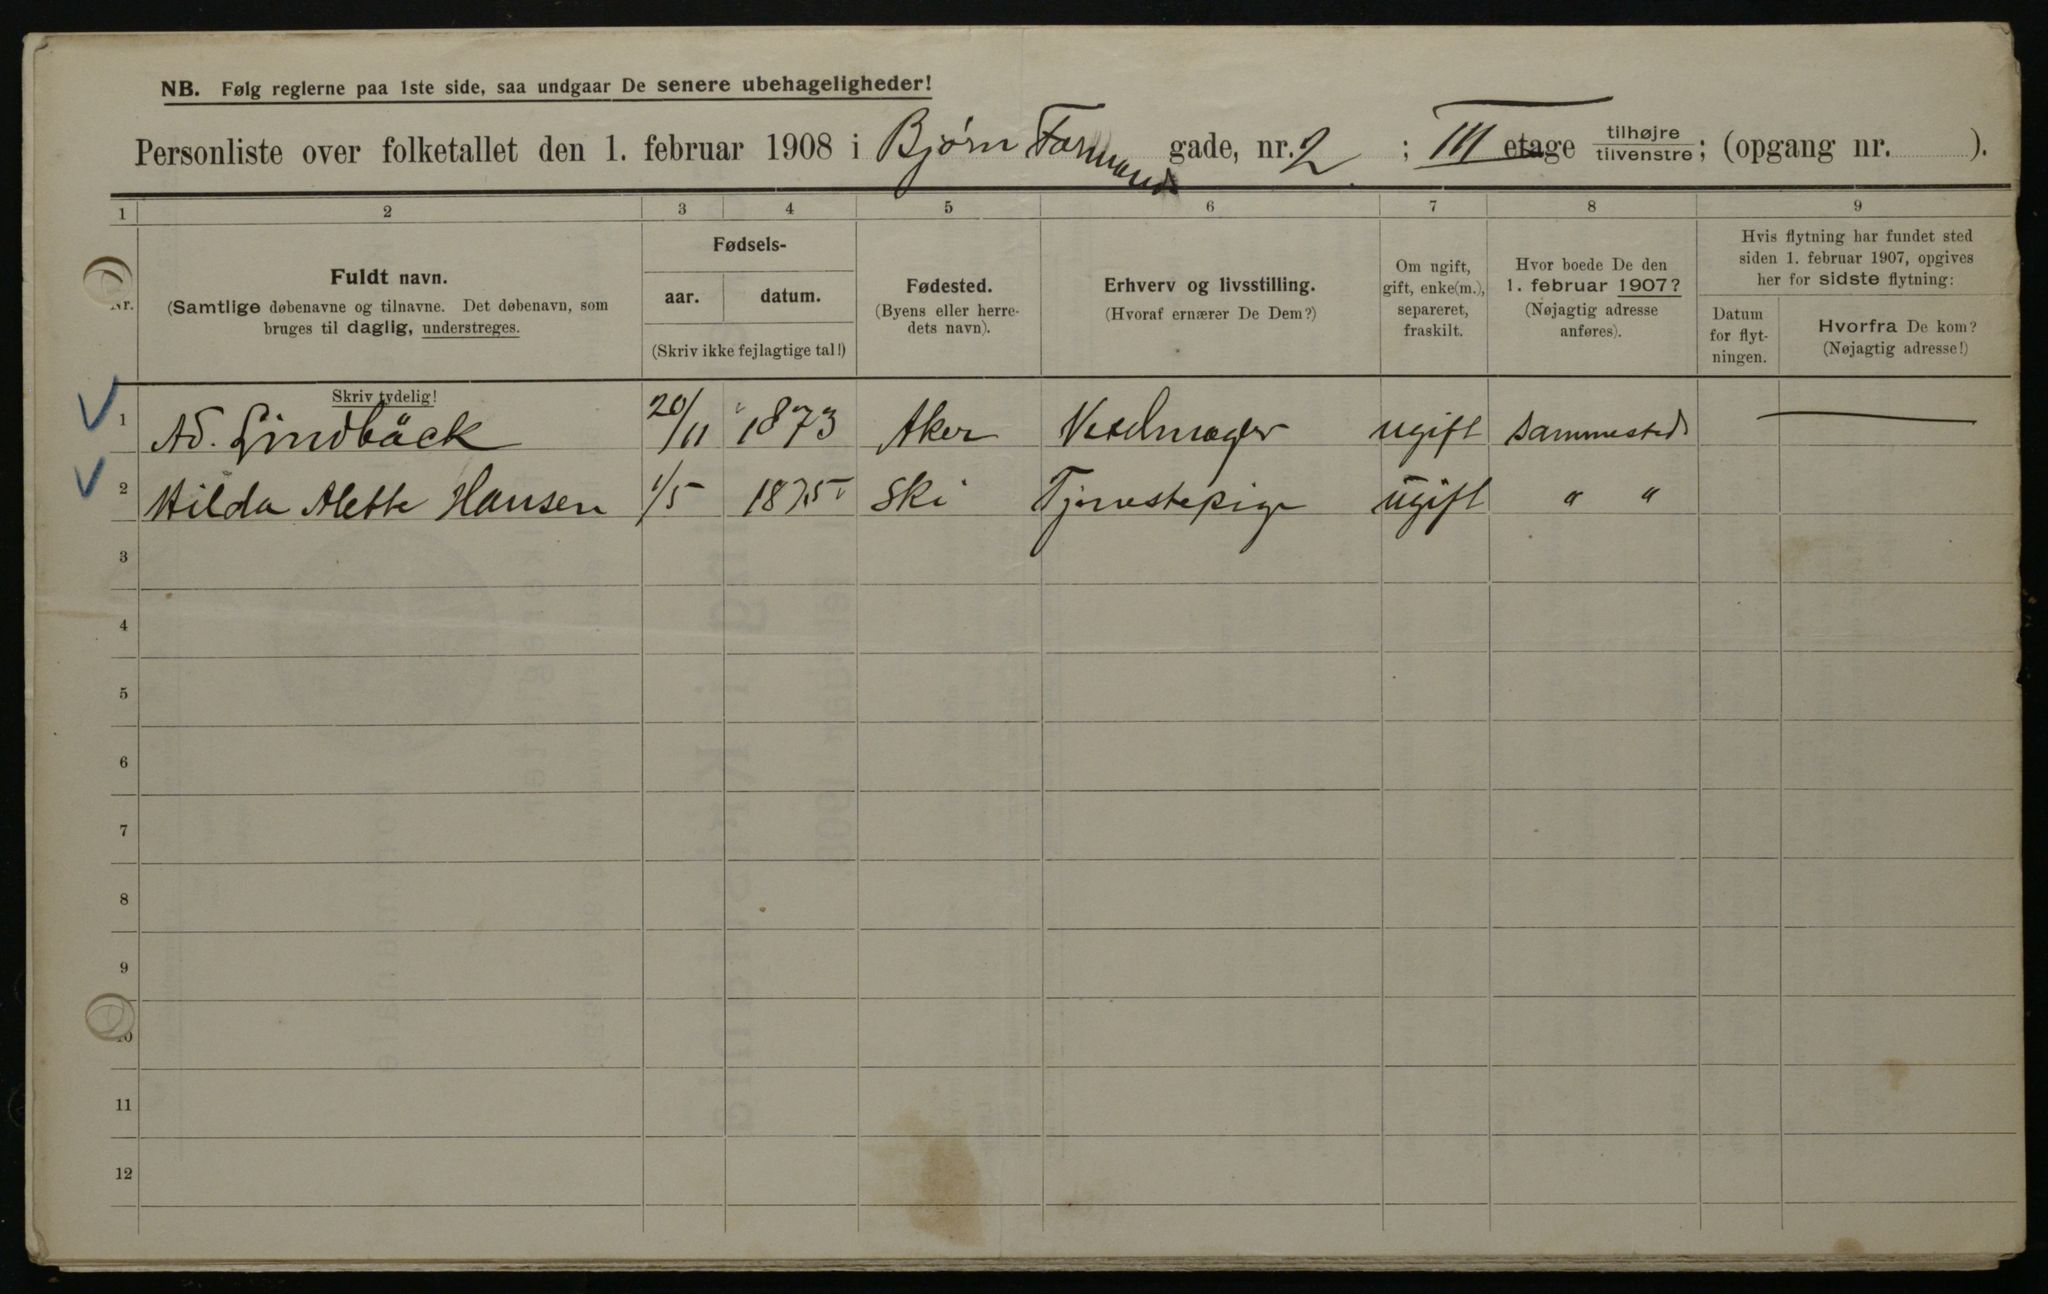 NB. Følg reglerne paa 1ste side, saa undgaar De senere ubehageligheder!
Personliste over folketallet den 1. februar 1908 i Bjørn Farmands gade, nr. 2 ; III etage tilhøjre/tilvenstre; (opgang nr. ).
1 2 3 4 5 6 7 8 9
Nr.
Fuldt navn.
(Samtlige døbenavne og tilnavne. Det døbenavn, som
bruges til daglig, understreges.
Skriv tydelig!
Fødsels-
aar. datum.
(Skriv ikke fejlagtige tal!)
Fødested.
(Byens eller herre-
dets navn).
Erhverv og livsstilling.
(Hvoraf ernærer De Dem?)
Om ugift,
gift, enke(m.),
separeret,
fraskilt.
Hvor boede De den
1. februar 1907?
(Nøjagtig adresse
anføres).
Hvis flytning har fundet sted
siden 1. februar 1907, opgives
her for sidste flytning:
Datum
for flyt-
ningen.
Hvorfra De kom?
(Nøjagtig adresse!)
1 Ad. Lindbäck 20/11 1873 Aker Vexelmægler ugift sammesteds
2 Hilda Alette Hansen 1/5 1875 Ski Tjenestepige ugift " "
3
4
5
6
7
8
9
10
11
12